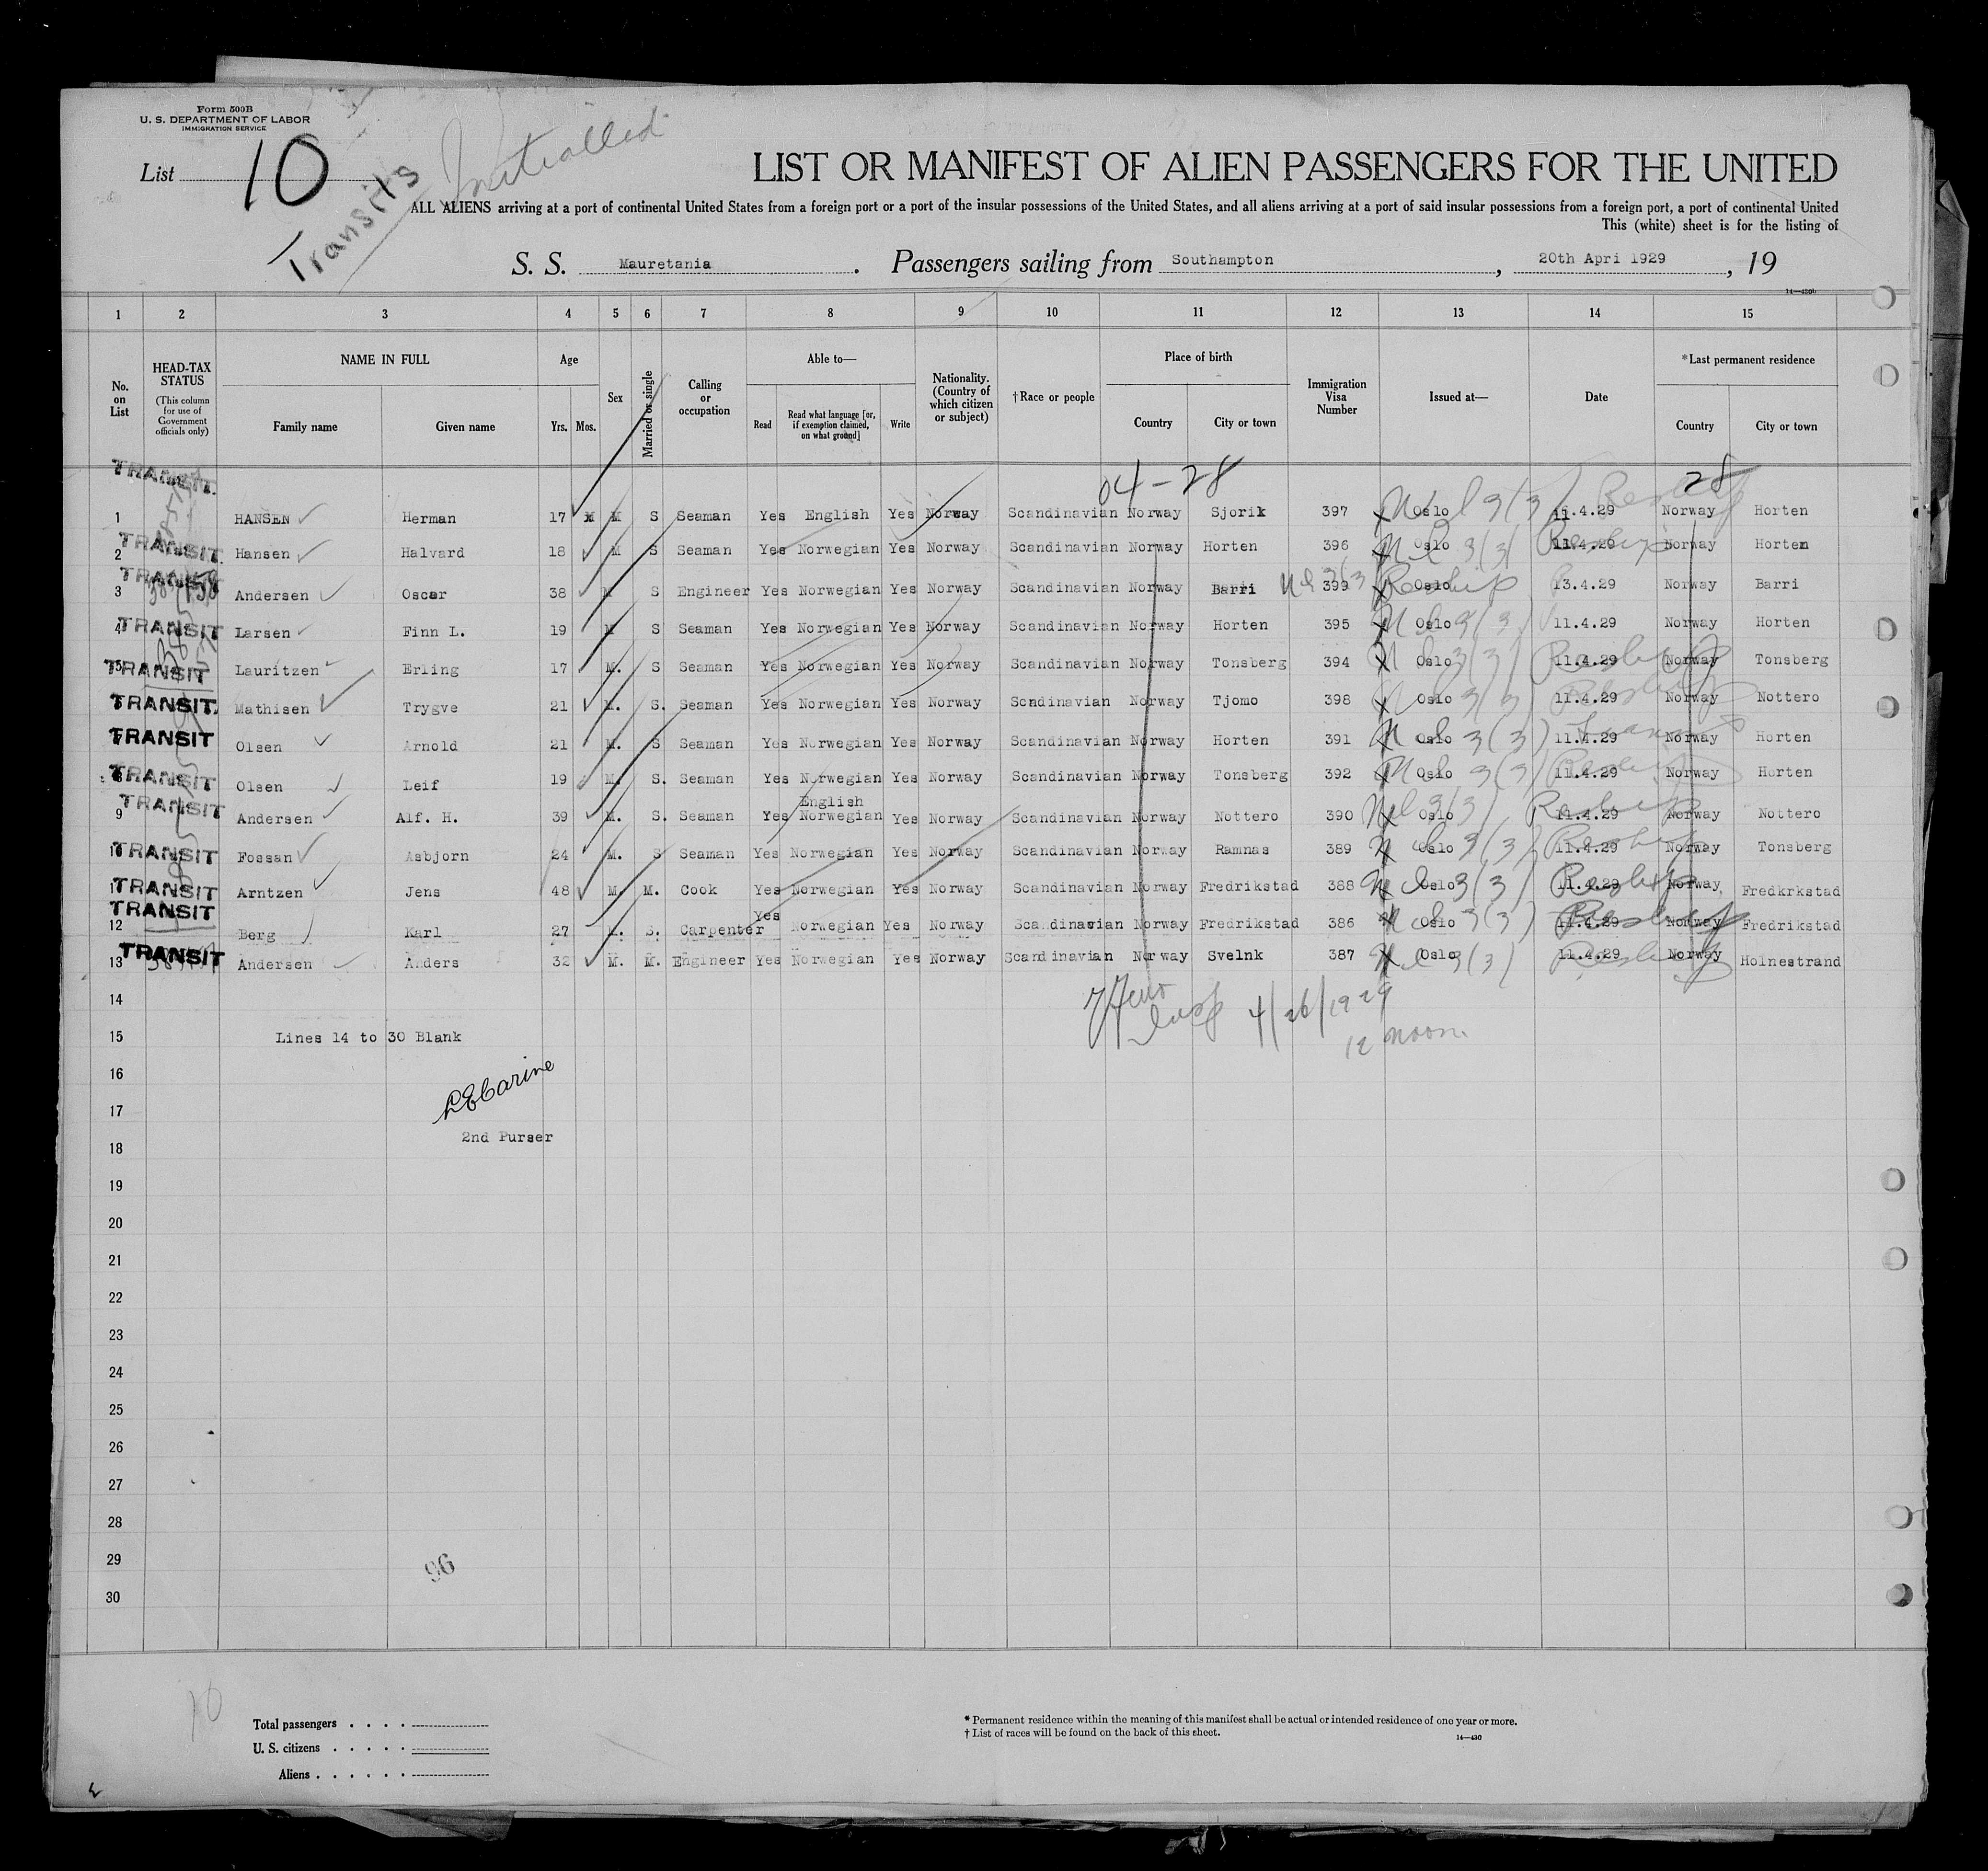 Form 500B
U. S. DEPARTMENT OF LABOR
IMMIGRATION SERVICE
List 10
Transits
Initialled
LIST OR MANIFEST OF ALIEN PASSENGERS FOR THE UNITED
ALL ALIENS arriving at a port of continental United States from a foreign port or a port of the insular possessions of the United States, and all aliens arriving at a port of said insular possessions from a foreign port, a port of continental United
This (white) sheet is for the listing of
S. S. Mauretania. Passengers sailing from Southampton, 20th Apri 1929, 19
14—430b
1 2 3 4 5 6 7 8 9 10 11 12 13 14 15
No. on List
HEAD-TAX STATUS (This column for use of Government officials only)
NAME IN FULL
Family name Given name
Age
Yrs. Mos.
Sex
Married or single
Calling or occupation
Able to—
Read Read what language [or, if exemption claimed, on what ground] Write
Nationality. (Country of which citizen or subject)
†Race or people
Place of birth
Country City or town
Immigration Visa Number
Issued at—
Date
*Last permanent residence
Country City or town
04-28 28
TRANSIT.
1 HANSEN Herman 17 M M S Seaman Yes English Yes Norway Scandinavian Norway Sjorik 397 Oslo 3(3) 11.4.29 Norway Horten
TRANSIT.
2 Hansen Halvard 18 M S Seaman Yes Norwegian Yes Norway Scandinavian Norway Horten 396 Oslo 3(3) 11.4.29 Reship Norway Horten
TRANSIT
3 Andersen Oscar 38 M S Engineer Yes Norwegian Yes Norway Scandinavian Norway Barri 399 Oslo Reship 13.4.29 Norway Barri
TRANSIT
4 Larsen Finn L. 19 M S Seaman Yes Norwegian Yes Norway Scandinavian Norway Horten 395 Oslo 3(3) 11.4.29 Norway Horten
TRANSIT
5 Lauritzen Erling 17 M. S Seaman Yes Norwegian Yes Norway Scandinavian Norway Tonsberg 394 Oslo 3(3) 11.4.29 Reship Norway Tonsberg
TRANSIT.
6 Mathisen Trygve 21 M. S. Seaman Yes Norwegian Yes Norway Scndinavian Norway Tjomo 398 Oslo 3(3) 11.4.29 Reship Norway Nottero
TRANSIT
7 Olsen Arnold 21 M. S Seaman Yes Norwegian Yes Norway Scandinavian Norway Horten 391 Oslo 3(3) 11.4.29 Norway Horten
TRANSIT
8 Olsen Leif 19 M. S. Seaman Yes Norwegian Yes Norway Scandinavian Norway Tonsberg 392 Oslo 3(3) 11.4.29 Reship Norway Horten
TRANSIT
9 Andersen Alf. H. 39 M. S. Seaman Yes English Norwegian Yes Norway Scandinavian Norway Nottero 390 Oslo 3(3) 11.4.29 Reship Norway Nottero
TRANSIT
10 Fossan Asbjorn 24 M. S Seaman Yes Norwegian Yes Norway Scandinavian Norway Ramnas 389 Oslo 3(3) 11.4.29 Reship Norway Tonsberg
TRANSIT
11 Arntzen Jens 48 M. M. Cook Yes Norwegian Yes Norway Scandinavian Norway Fredrikstad 388 Oslo 3(3) 11.4.29 Reship Norway, Fredkrkstad
TRANSIT
12 Berg Karl 27 M. S. Carpenter Yes Norwegian Yes Norway Scandinavian Norway Fredrikstad 386 Oslo 3(3) 11.4.29 Reship Norway Fredrikstad
TRANSIT
13 Andersen Anders 32 M. M. Engineer Yes Norwegian Yes Norway Scandinavian Norway Svelnk 387 Oslo 3(3) 11.4.29 Reship Norway Holnestrand
14
15 Lines 14 to 30 Blank
4/26/1929
12 noon
16
17
2nd Purser
18
19
20
21
22
23
24
25
26
27
28
29
96
30
10
Total passengers
U. S. citizens
Aliens
* Permanent residence within the meaning of this manifest shall be actual or intended residence of one year or more.
† List of races will be found on the back of this sheet.
14—430